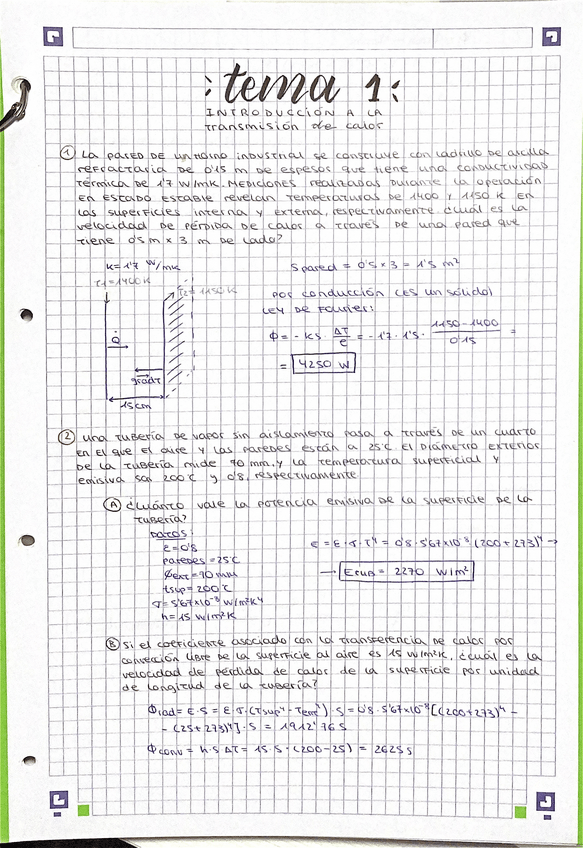 :tema 1:
INTRODUCCIÓN A LA
transmisión de calor
① La pared de un horno industrial se construye con ladrillo de arcilla
refractaria de 0'15 m de espesor que tiene una conductividad
térmica de 1'7 W/mK. Mediciones realizadas durante la operación
en estado estable revelan temperaturas de 1400 y 1150 K en
las superficies interna y externa, respectivamente ¿cuál es la
velocidad de pérdida de calor a través de una pared que
tiene 0'5 m x 3 m de lado?
K = 1'7 W/mK
T1 = 1400 K
T2 = 1150 K
Q̇
gradT
15cm
Spared = 0'5 x 3 = 1'5 m²
por conducción (es un sólido)
Ley de Fourier:
Φ = - KS · ΔT/e = -1'7 · 1'5 · (1150-1400)/0'15 =
= 4250 W
② Una tubería de vapor sin aislamiento pasa a través de un cuarto
en el que el aire y las paredes están a 25°C. El diámetro exterior
de la tubería mide 70 mm. y la temperatura superficial y
emisiva son 200°C y 0'8, respectivamente
Ⓐ ¿Cuánto vale la potencia emisiva de la superficie de la
tubería?
Datos:
ε = 0'8
paredes = 25°C
Øext = 70 mm
tsup = 200°C
σ = 5'67x10⁻⁸ W/m²K⁴
h = 15 W/m²K
E = ε · σ · T⁴ = 0'8 · 5'67x10⁻⁸ · (200+273)⁴ →
→ Etub = 2270 W/m²
Ⓑ Si el coeficiente asociado con la transferencia de calor por
convección libre de la superficie al aire es 15 W/m²K, ¿cuál es la
velocidad de pérdida de calor de la superficie por unidad
de longitud de la tubería?
Φrad = E · S = ε · σ · (Tsup⁴ - Text⁴) · S = 0'8 · 5'67x10⁻⁸ [(200+273)⁴ -
- (25+273)⁴] · S = 1912'76 S
Φconv = h · S ΔT = 15 · S · (200-25) = 2625 S